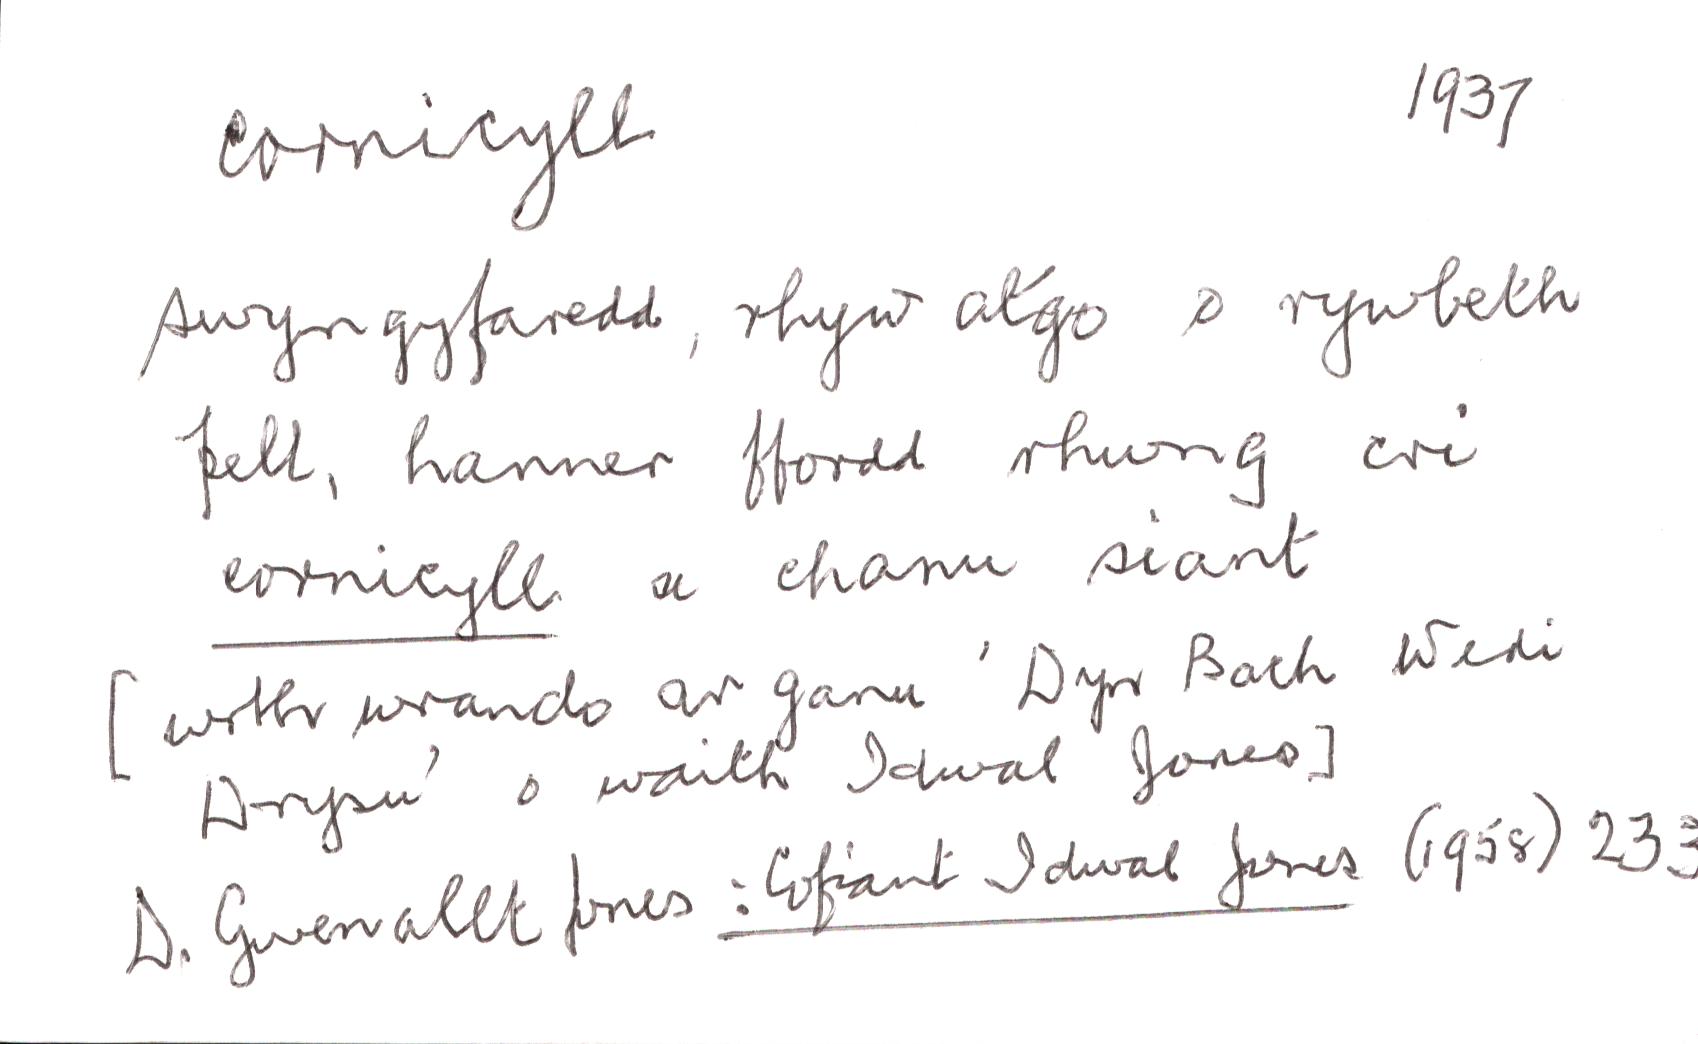 cornicyll 1937
swyngyfaredd, rhyw atgo o rywbeth
pell, hanner ffordd rhwng cri
cornicyll a chanu siant
[wrth wrando ar ganu 'Dyn Bach Wedi
Drysu' o waith Idwal Jones]
D. Gwenallt Jones : Cofiant Idwal Jones (1958) 233